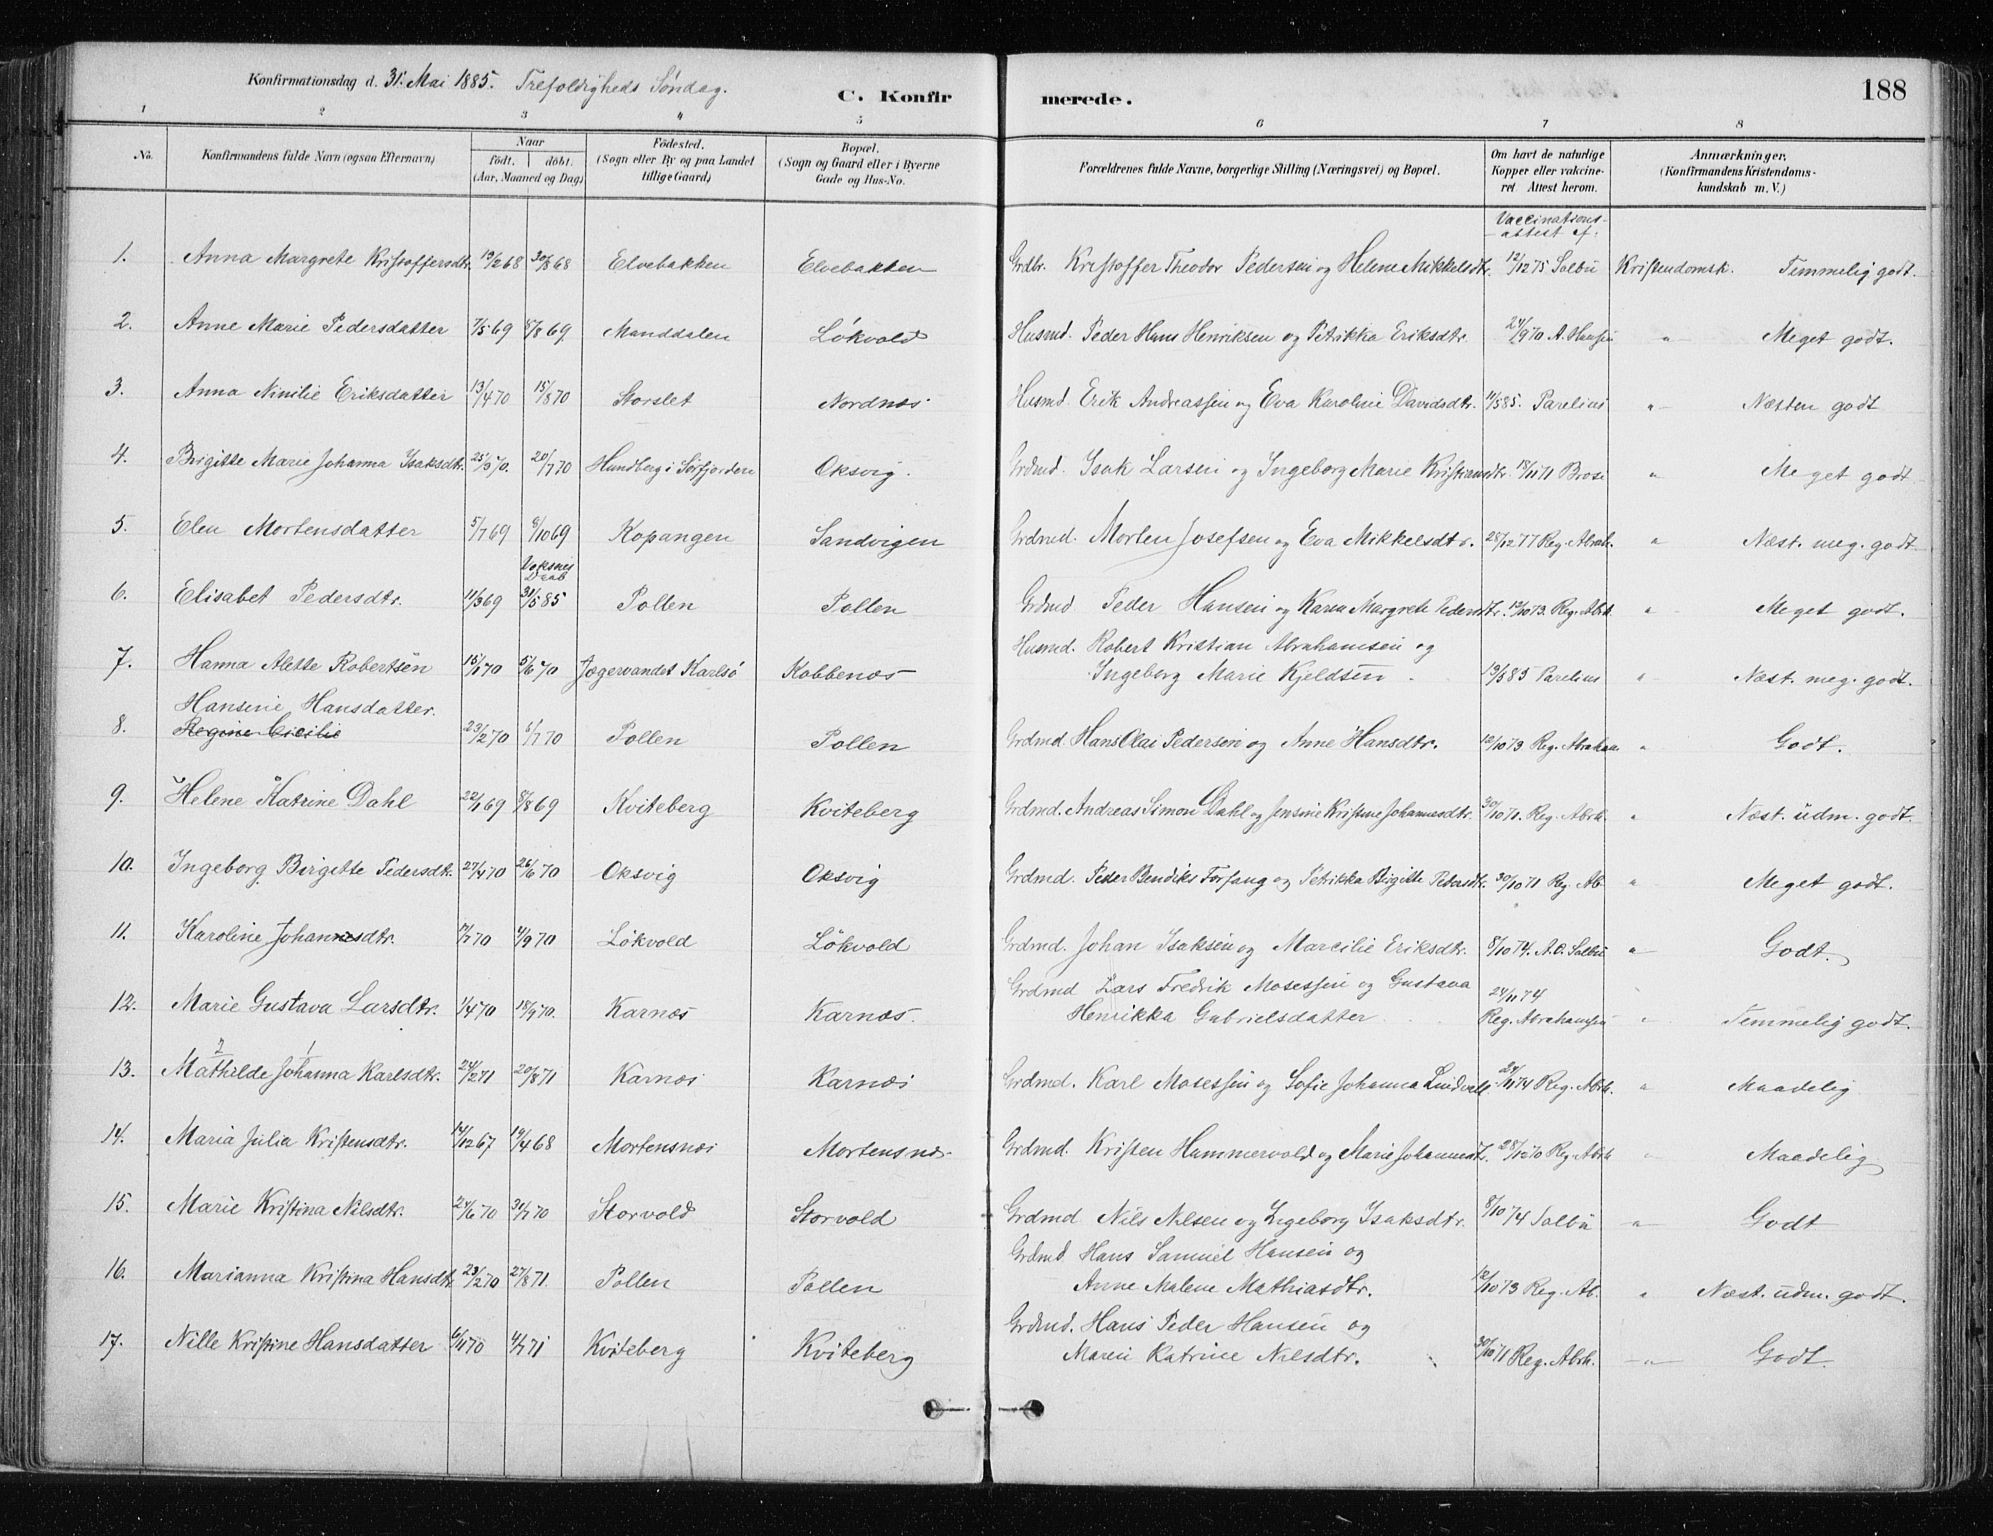 Konfirmationsdag d. 31. Mai 1885. Trefoldigheds Söndag.
C. Konfirmerede.
188
1 2 3 4 5 6 7 8
No. Konfirmandens fulde Navn (ogsaa Efternavn) Naar födt. döbt. (Aar, Maaned og Dag) Födested. (Sogn eller By og paa Landet tillige Gaard) Bopæl. (Sogn og Gaard eller i Byerne Gade og Hus-No. Forældrenes fulde Navne, borgerlige Stilling (Næringsvei) og Bopæl. Om havt de naturlige Kopper eller vakcineret Attest herom. Anmærkninger. (Konfirmandens Kristendomskundskab m. V.)
Vaccinations-attest af.
1. Anna Margrete Kristoffersdtr. 19/2 68 30/8 68 Elvebakken Elvebakken Grdbr. Kristoffer Theodor Pedersen og Helene Mikkelsdtr. 12/12 75 Salbu Kristendomsk. Temmelig godt.
2. Anne Marie Pedersdatter 7/5 69 8/8 69 Manddalen Lökvold Husmd. Peder Hans Henriksen og Petrikka Eriksdtr. 24/9 70 A. Hansen " Meget godt.
3. Anna Nimilie Eriksdatter 13/4 70 15/8 70 Storslet Nordnæs Husmd. Erik Andreassen og Eva Karoline Davidsdtr. 11/5 85. Parelius " Næsten godt
4. Birgitte Marie Johanna Isaksdtr. 25/3 70. 20/7 70 Hundberg i Sörfjorden Oksvig. Grdmd. Isak Larsen og Ingeborg Marie Kristiansdtr. 18/11 71 Brose " Meget godt
5. Elen Mortensdatter 5/7 69 8/10 69 Kopangen Sandvigen Grdmd. Morten Josefsen og Eva Mikkelsdtr. 28/12 77 Reg. Abrah. " Næst. meg. godt
6. Elisabet Pedersdtr. 11/3 69 Voksnes Daab 31/5 85 Pollen Pollen Grdmd Peder Hansen og Karen Margrete Pedersdtr. 12/10 73. Reg. Abrh. " Meget godt.
7. Hanna Alette Robertsen 15/1 70 5/6 70 Jægervandet Karlsö Kobbenæs Husmd. Robert Kristian Abrahamsen og
Ingeborg Marie Kjeldsen. 19/5 85 Parelius " Næst. meg. godt.
Hansine Hansdatter.
8. Regine Cicilie 23/2 70 6/7 70 Pollen Pollen Grdmd. Hans Olai Pedersen og Anne Hansdtr. 12/10 73 Reg. Abraham " Godt.
9. Helene Katrine Dahl 22/1 69 8/8 69 Kviteberg Kviteberg Grdmd. Andreas Simon Dahl og Jensine Kristine Johannesdtr. 30/10 71. Reg. Abrh. " Næst. udm. godt.
10. Ingeborg Birgitte Pedersdtr. 27/4 70 26/6 70 Oksvig Oksvig Grdmd. Peder Bendiks Forfang og Petrikka Birgitte Petersdtr. 30/10 71 Reg. Ab " Meget godt.
11. Karoline Johannesdtr. 17/7 70 4/9 70 Lökvold Lökvold Grdmd. Johan Isaksen og Marcilie Eriksdtr. 8/10 74. A.O. Salbu " Godt.
12. Marie Gustava Larsdtr. 1/4 70 18/9 70. Karnæs Karnæs. Grdmd Lars Fredrik Mosessen og Gustava
Henrikka Gabrielsdatter 24/11 74 Reg. Abrahamsen " Temmelig godt.
2 1
13. Mathilde Johanna Karlsdtr. 24/2 71 20/8 71 Karnæs Karnæs Grdmd. Karl Mosessen og Sofie Johanna Lindvall 24/11 74 Reg. Abrh. " Maadelig
14. Maria Julia Kristensdtr. 14/12 67 19/4 68 Mortensnæs Mortensnæs Grdmd. Kristen Hammervold og Marie Johannesdtr. 28/12 70 Reg. Abrh " Maadelig
15. Marie Kristina Nilsdtr. 24/6 70 31/7 70 Storvold Storvold Grdmd Nils Nilsen og Ingeborg Isaksdtr. 8/10 74 Salbu " Godt
16. Marianna Kristina Hansdtr 23/2 70 27/8 71. Pollen Pollen Grdmd. Hans Samuel Hansen og
Anne Malene Mathiasdtr. 12/10 73 Reg. Ab. " Næst. udm. godt.
17. Nille Kristine Hansdatter 6/11 70 4/7 71 Kviteberg Kviteberg Grdmd. Hans Peder Hansen og
Maren Katrine Nilsdtr. 30/10 71 Reg. Abrh. " Godt.